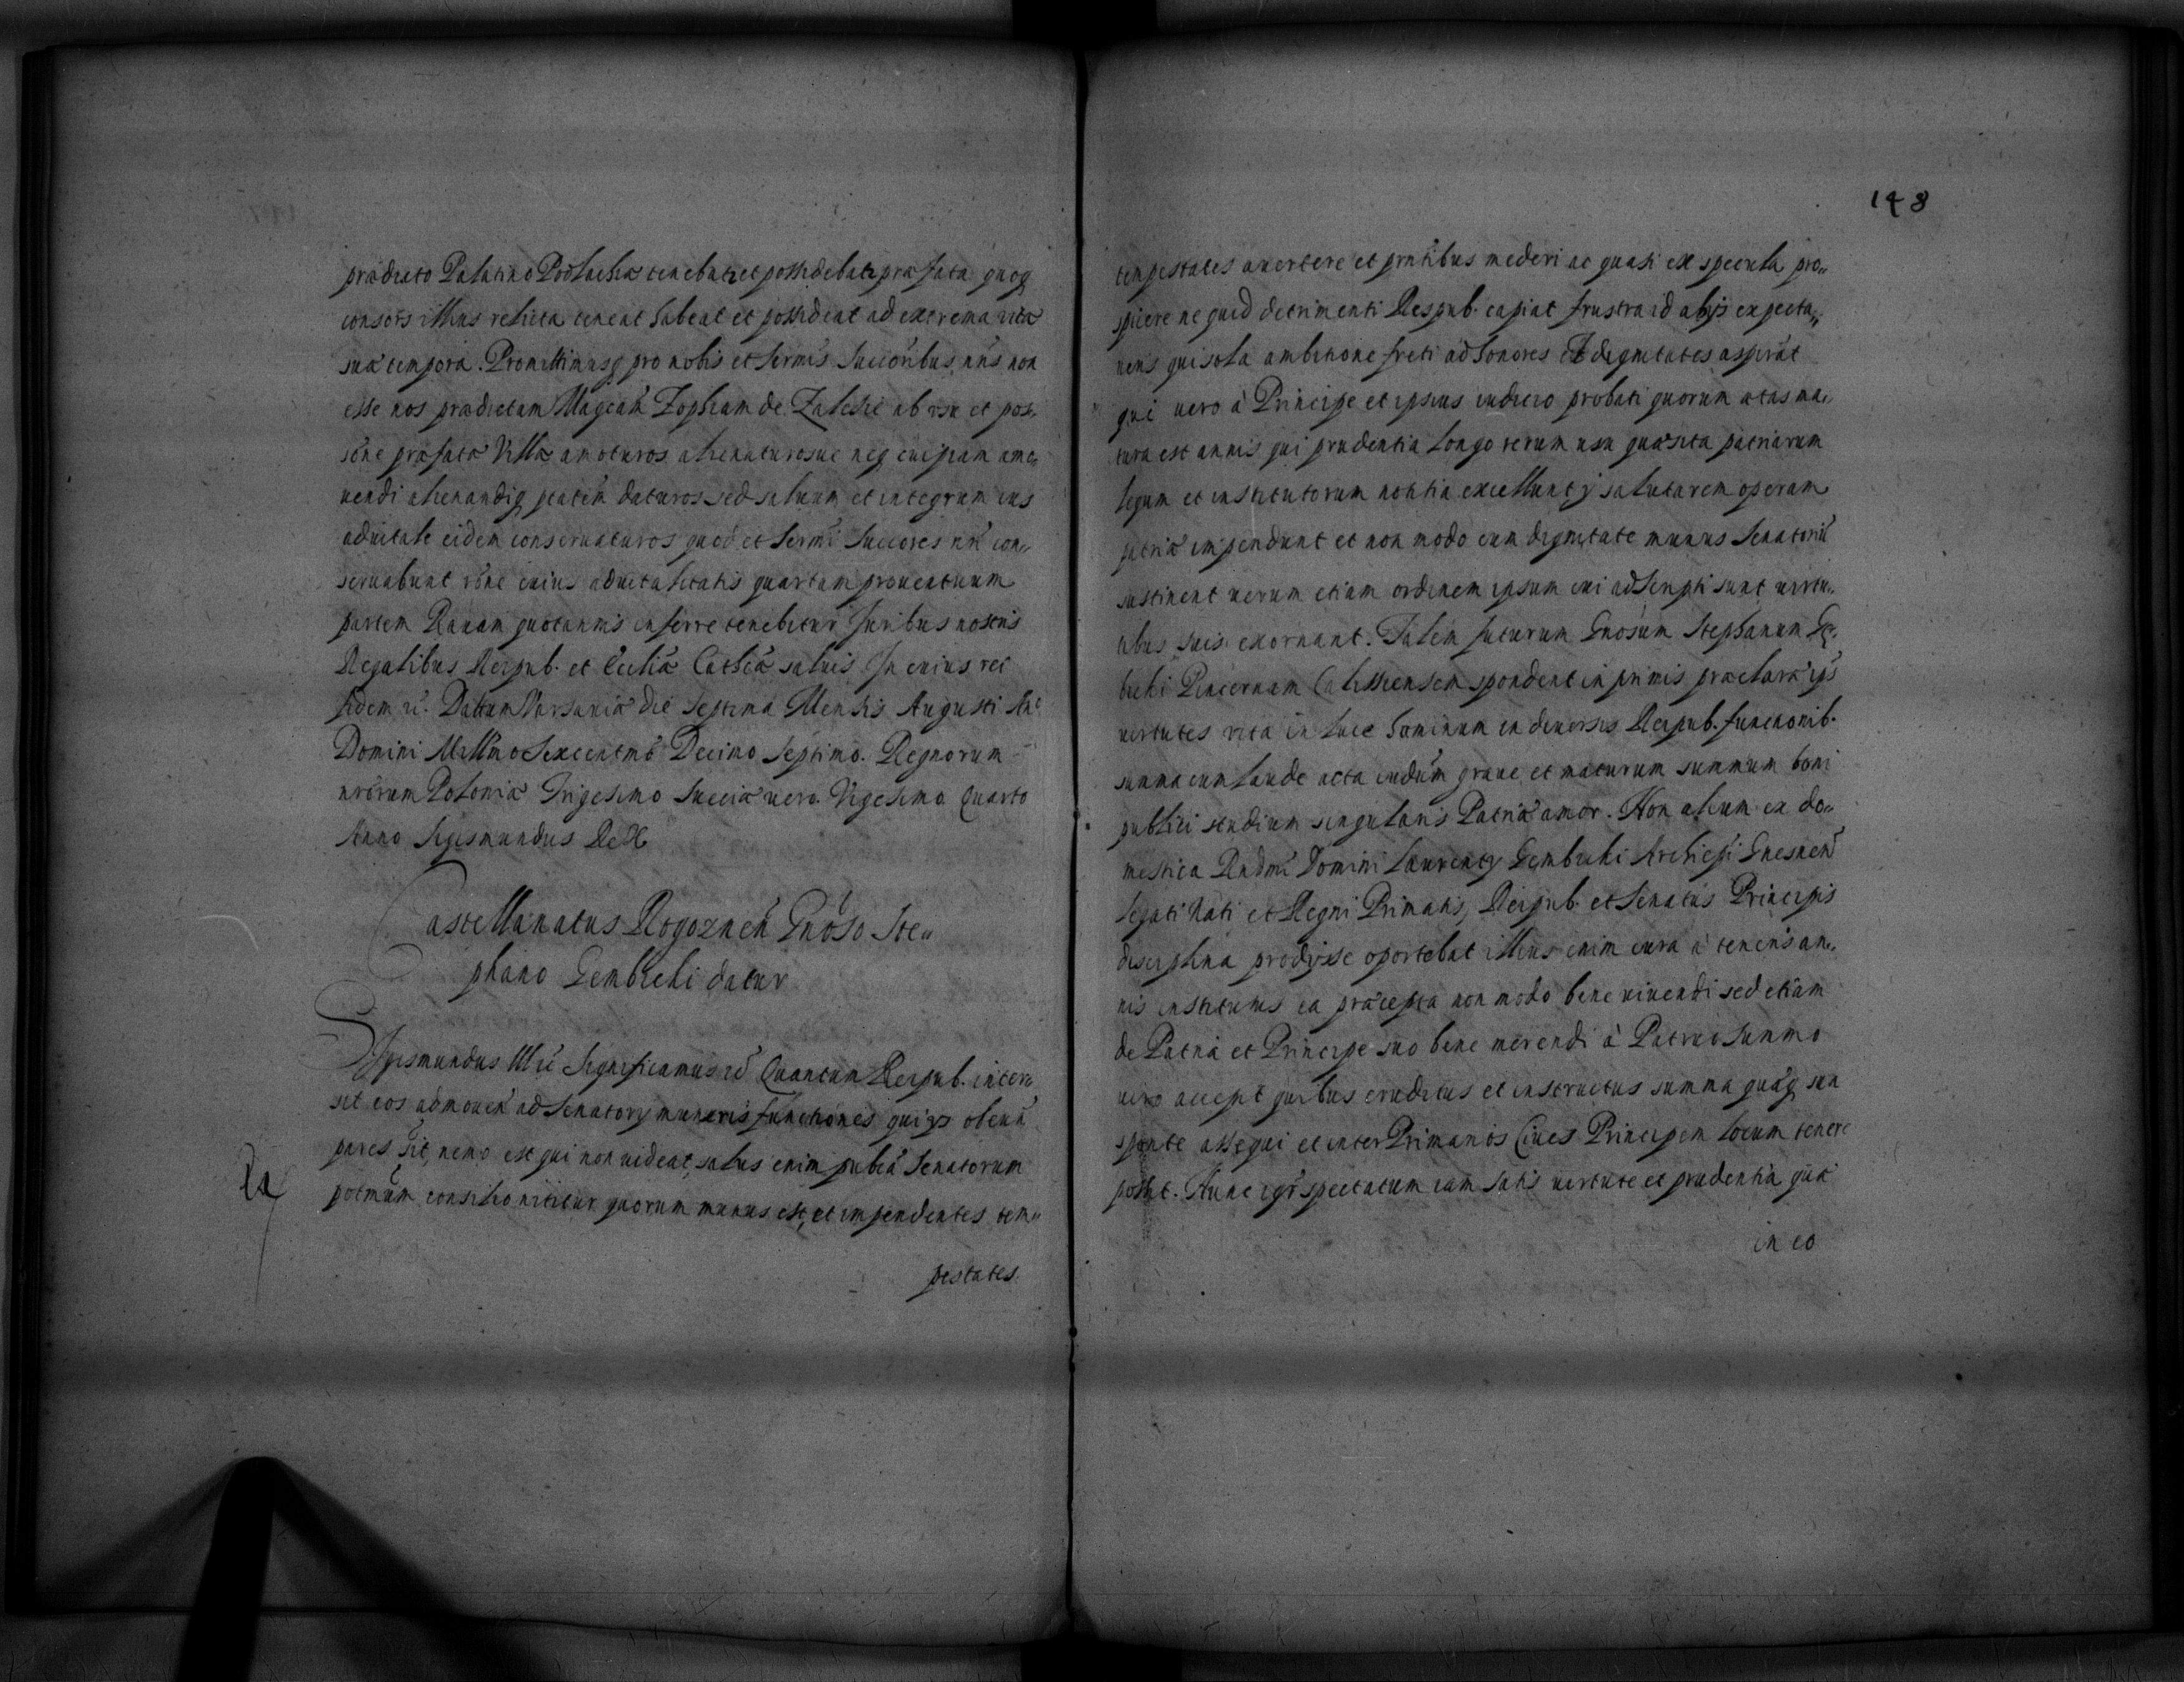 prædicto Palatino Podlachiæ tenebatur et possidebatur præfata quoq
consors illius relicta teneat habeat et possideat ad extrema vitæ
suæ tempora. Promittimusq pro nobis et Sermis Succoribus nris non
esse nos prædictam Magcam Zophiam de Zalesie ab usu et pos-
sone præfatæ Villæ amoturos alienaturosue neq cuipiam amo-
uendi alienandiq ptatem daturos sed saluum et integrum ius
aduitale eidem conseruaturos quod et Sermi Succores nri con-
seruabunt rone cuius aduitalitatis quartam prouentuum
partem Rauam quotannis inferre tenebitur Juribus nostris
Regalibus Reipub. et Eccliæ Cathcæ saluis In cuius rei
fidem etc. Datum Varsauiæ die Septima Mensis Augusti An
Domini Millmo Sexcentmo Decimo Septimo. Regnorum
nrorum Poloniæ Trigesimo Sueciæ uero Vigesimo Quarto
Anno Sigismundus Rex
Castellanatus Rogoznen Gnoso Ste-
phano Gembicki datur
Sigismundus IIIus Significamus etc Quantum Reipub. inter-
sit eos admoueri ad Senatorij muneris functiones qui ijs obeun
pares sit, nemo est qui non uideat, salus enim publca Senatorum
potmum consilio nititur quorum munus est, et impendentes tem-
pestates
148
tempestates auertere et pntibus mederi ac quasi ex specula pro-
spicere ne quid detrimenti Respub. capiat frustra id ab ijs expecta-
ueris qui sola ambitione freti ad honores et dignitates aspirat
qui uero à Principe et ipsius iudicio probati quorum ætas ma-
tura est annis qui prudentia longo rerum usu quæsita patriarum
legum et institutorum notitia excellunt ij salutarem operam
patriæ impendunt et non modo cum dignitate munus Senatoriu
sustinent uerum etiam ordinem ipsum cui adscripti sunt uirtu-
tibus suis exornant. Talem futurum Gnosum Stephanum Ge-
bicki Pincernam Calissiensem spondent in primis præclaræ ips
uirtutes vita in luce hominum in diuersis Reipub. functionib.
summa cum laude acta iudium graue et maturum summum boni
publici studium singularis Patriæ amor. Non alium ex do-
mestica Rndmi Domini Laurentij Gembicki Archiepi Gnesnen
Legati Nati et Regni Primatis, Reipub. et Senatus Principis
disciplina prodijsse oportebat illius enim cura à teneris an-
nis institutus ea præcepta non modo bene uiuendi sed etiam
de Patria et Principe suo bene merendi à Patruo summo
uiro accepit quibus eruditus et instructus summa quæq sua
sponte assequi et inter Primarios Ciues Principem locum tenere
possit. Hunc igr spectatum iam satis uirtute et prudentia quæ
in eo